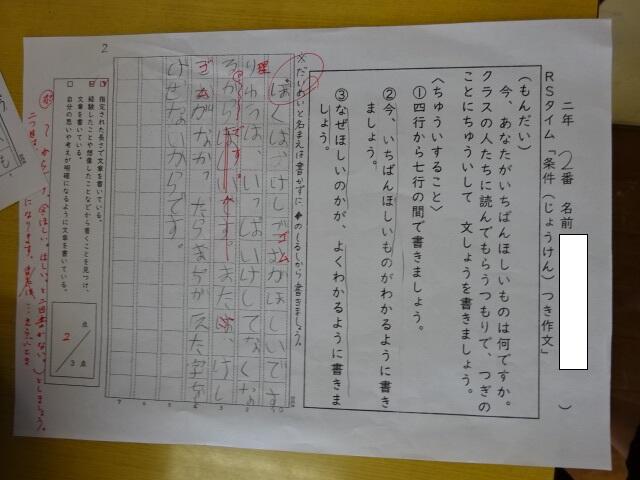 二年 2番 名前（ ）
RSタイム「条件（じょうけん）つき作文」
（もんだい）
今、あなたがいちばんほしいものは何ですか。
クラスの人たちに読んでもらうつもりで、つぎの
ことにちゅういして 文しょうを書きましょう。
〈ちゅういすること〉
①四行から七行の間で書きましょう。
②今、いちばんほしいものがわかるように書き
ましょう。
③なぜほしいのかが、よくわかるように書きま
しょう。
※だいめいと名まえは書かずに、◆のしるしから書きましょう。
ぼくは、けしゴムがほしいです。
理
りゆうは、いっぱいけしてなくなっ
たからほしいです。また、けし
ゴムがなかったらまちがえた字を
けせないからです。
指定された長さで文章を書いている。
経験したことや想像したことなどから書くことを見つけ、
文章を書いている。
自分の思いや考えが明確になるように文章を書いている。
2
3点
点
2